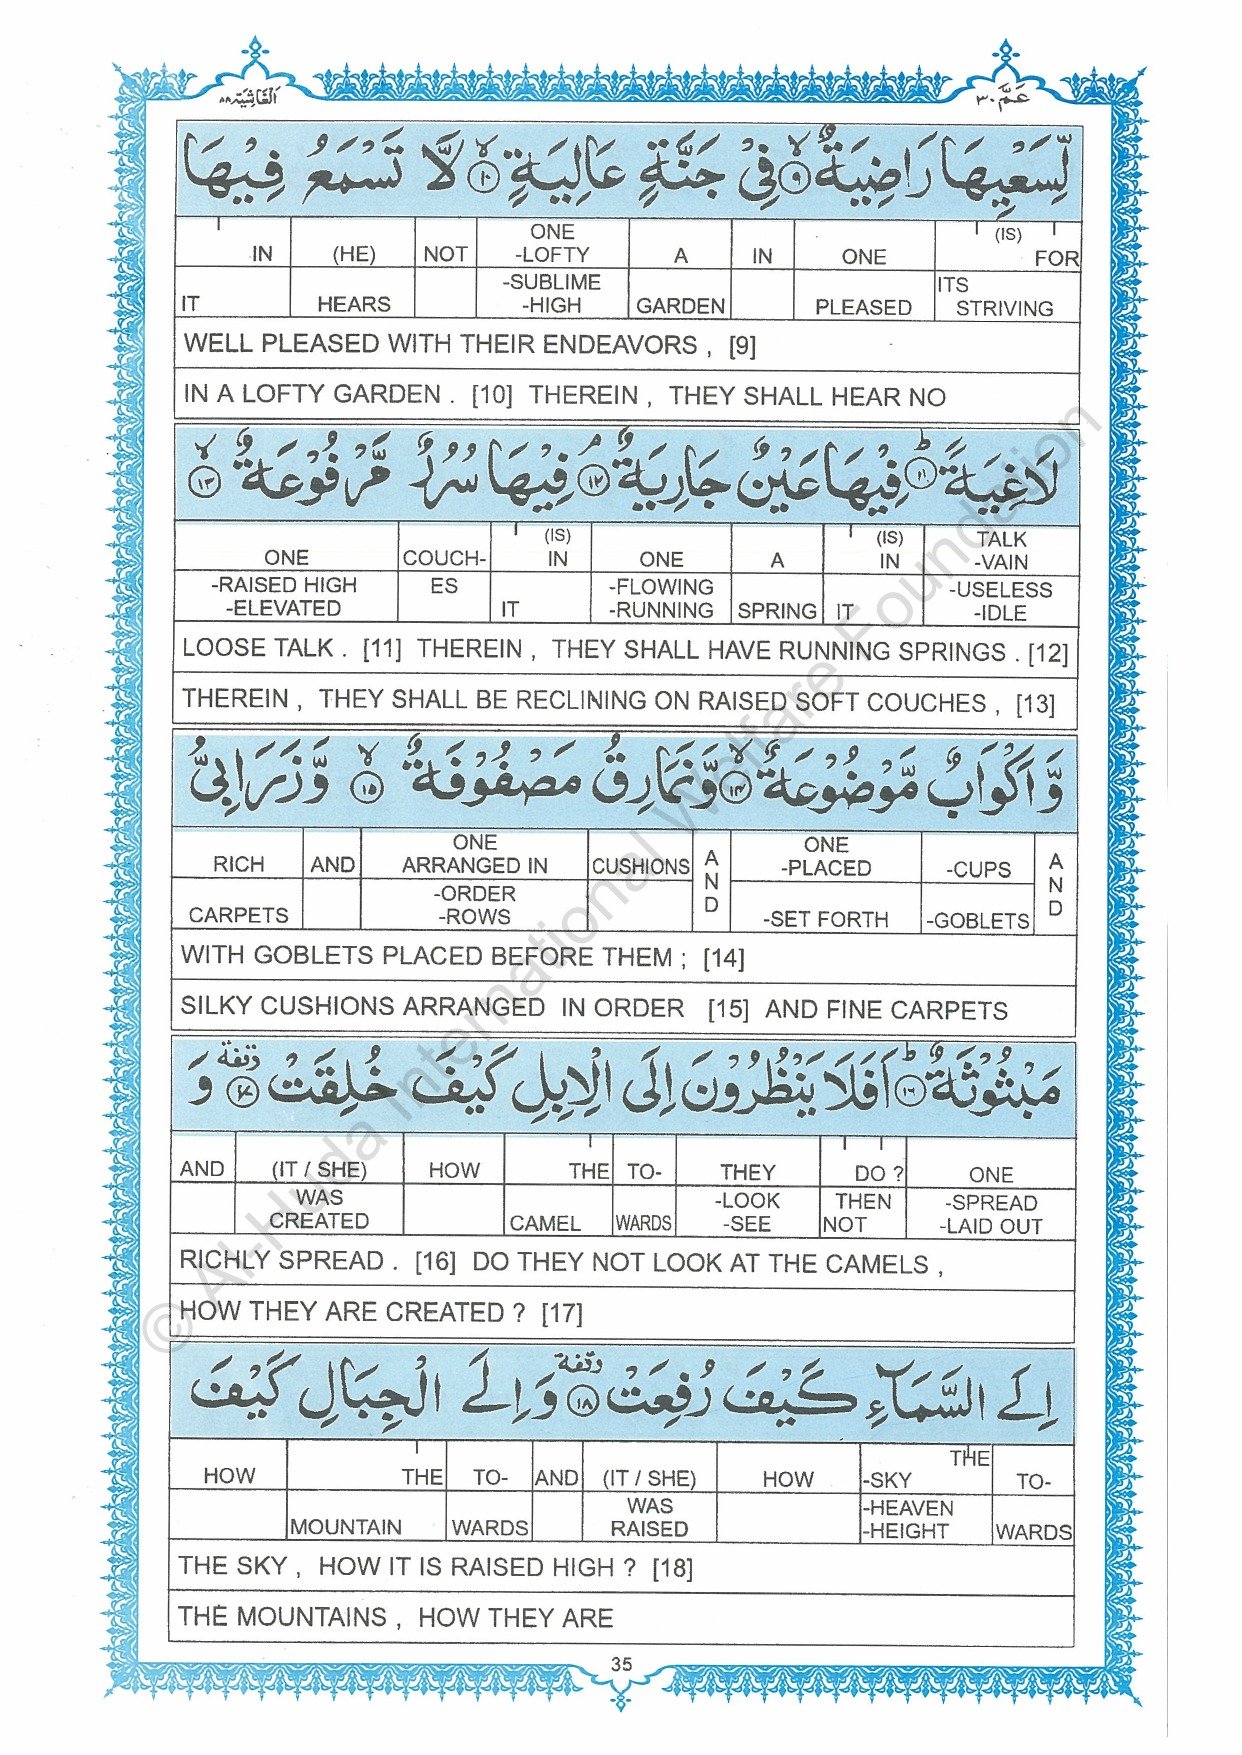 عَمَّ ٣٠
اَلْغَاشِيَة ٨٨
لِّسَعْيِهَا رَاضِيَةٌ ۙ ٩ فِيْ جَنَّةٍ عَالِيَةٍ ۙ ١٠ لَّا تَسْمَعُ فِيْهَا
IN (HE) NOT ONE -LOFTY A IN ONE (IS) FOR
IT HEARS -SUBLIME -HIGH GARDEN PLEASED ITS STRIVING
WELL PLEASED WITH THEIR ENDEAVORS , [9]
IN A LOFTY GARDEN . [10] THEREIN , THEY SHALL HEAR NO
لَاغِيَةً ؕ ١١ فِيْهَا عَيْنٌ جَارِيَةٌ ۘ ١٢ فِيْهَا سُرُرٌ مَّرْفُوْعَةٌ ۙ ١٣
ONE COUCH- (IS) IN ONE A (IS) IN TALK -VAIN
-RAISED HIGH -ELEVATED ES IT -FLOWING -RUNNING SPRING IT -USELESS -IDLE
LOOSE TALK . [11] THEREIN , THEY SHALL HAVE RUNNING SPRINGS . [12]
THEREIN , THEY SHALL BE RECLINING ON RAISED SOFT COUCHES , [13]
وَّ اَكْوَابٌ مَّوْضُوْعَةٌ ۙ ١٤ وَّنَمَارِقُ مَصْفُوْفَةٌ ۙ ١٥ وَّ زَرَابِيُّ
RICH AND ONE ARRANGED IN CUSHIONS AND ONE -PLACED -CUPS AND
CARPETS -ORDER -ROWS -SET FORTH -GOBLETS
WITH GOBLETS PLACED BEFORE THEM ; [14]
SILKY CUSHIONS ARRANGED IN ORDER [15] AND FINE CARPETS
مَبْثُوْثَةٌ ؕ ١٦ اَفَلَا يَنْظُرُوْنَ اِلَى الْاِبِلِ كَيْفَ خُلِقَتْ وقفة ١٧ وَ
AND (IT / SHE) HOW THE TO- THEY DO ? ONE
WAS CREATED CAMEL WARDS -LOOK -SEE THEN NOT -SPREAD -LAID OUT
RICHLY SPREAD . [16] DO THEY NOT LOOK AT THE CAMELS ,
HOW THEY ARE CREATED ? [17]
اِلَى السَّمَآءِ كَيْفَ رُفِعَتْ وقفة ١٨ وَ اِلَى الْجِبَالِ كَيْفَ
HOW THE TO- AND (IT / SHE) HOW THE -SKY TO-
MOUNTAIN WARDS WAS RAISED -HEAVEN -HEIGHT WARDS
THE SKY , HOW IT IS RAISED HIGH ? [18]
THE MOUNTAINS , HOW THEY ARE
35
© Al-Huda International Welfare Foundation